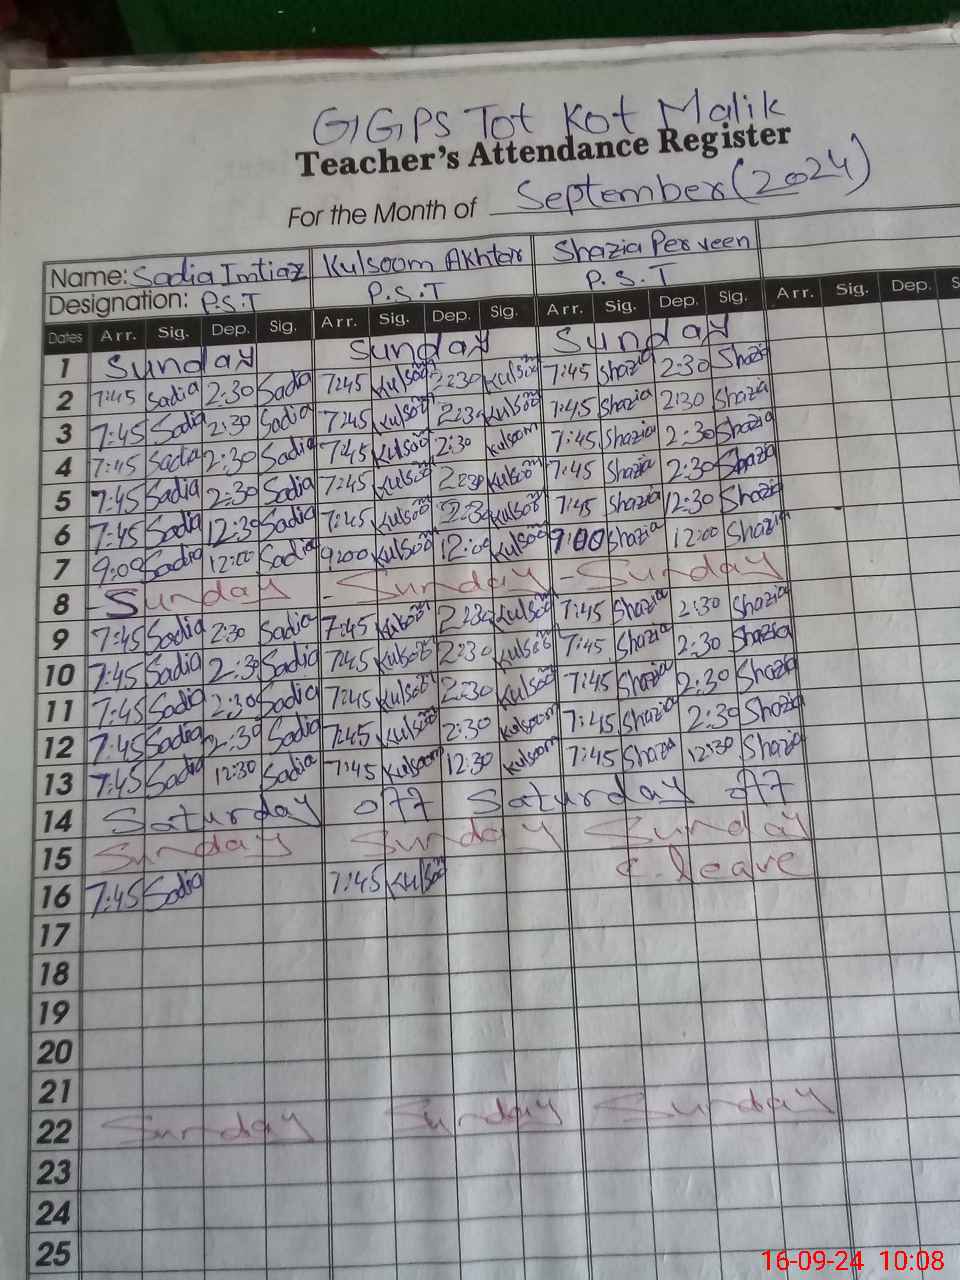 GGPS Tot Kot Malik
Teacher's Attendance Register
For the Month of September (2024)
Name: Sadia Imtiaz Kulsoom Akhtar Shazia Perveen
Designation: P.S.T P.S.T P.S.T
Dates Arr. Sig. Dep. Sig. Arr. Sig. Dep. Sig. Arr. Sig. Dep. Sig. Arr. Sig. Dep. S
1 Sunday Sunday Sunday
2 7:45 Sadia 2:30 Sadia 7:45 Kulsoom 2:30 Kulsoom 7:45 Shazia 2:30 Shazia
3 7:45 Sadia 2:30 Sadia 7:45 Kulsoom 2:30 Kulsoom 7:45 Shazia 2:30 Shazia
4 7:45 Sadia 2:30 Sadia 7:45 Kulsoom 2:30 Kulsoom 7:45 Shazia 2:30 Shazia
5 7:45 Sadia 2:30 Sadia 7:45 Kulsoom 2:30 Kulsoom 7:45 Shazia 2:30 Shazia
6 7:45 Sadia 12:30 Sadia 7:45 Kulsoom 2:30 Kulsoom 7:45 Shazia 12:30 Shazia
7 9:00 Sadia 12:00 Sadia 9:00 Kulsoom 12:00 Kulsoom 9:00 Shazia 12:00 Shazia
8 - Sunday - Sunday - Sunday
9 7:45 Sadia 2:30 Sadia 7:45 Kulsoom 2:30 Kulsoom 7:45 Shazia 2:30 Shazia
10 7:45 Sadia 2:30 Sadia 7:45 Kulsoom 2:30 Kulsoom 7:45 Shazia 2:30 Shazia
11 7:45 Sadia 2:30 Sadia 7:45 Kulsoom 2:30 Kulsoom 7:45 Shazia 2:30 Shazia
12 7:45 Sadia 2:30 Sadia 7:45 Kulsoom 2:30 Kulsoom 7:45 Shazia 2:30 Shazia
13 7:45 Sadia 12:30 Sadia 7:45 Kulsoom 12:30 Kulsoom 7:45 Shazia 12:30 Shazia
14 Saturday off Saturday off
15 Sunday Sunday Sunday
16 7:45 Sadia 7:45 Kulsoom C.leave
17
18
19
20
21
22 Sunday Sunday Sunday
23
24
25
16-09-24 10:08